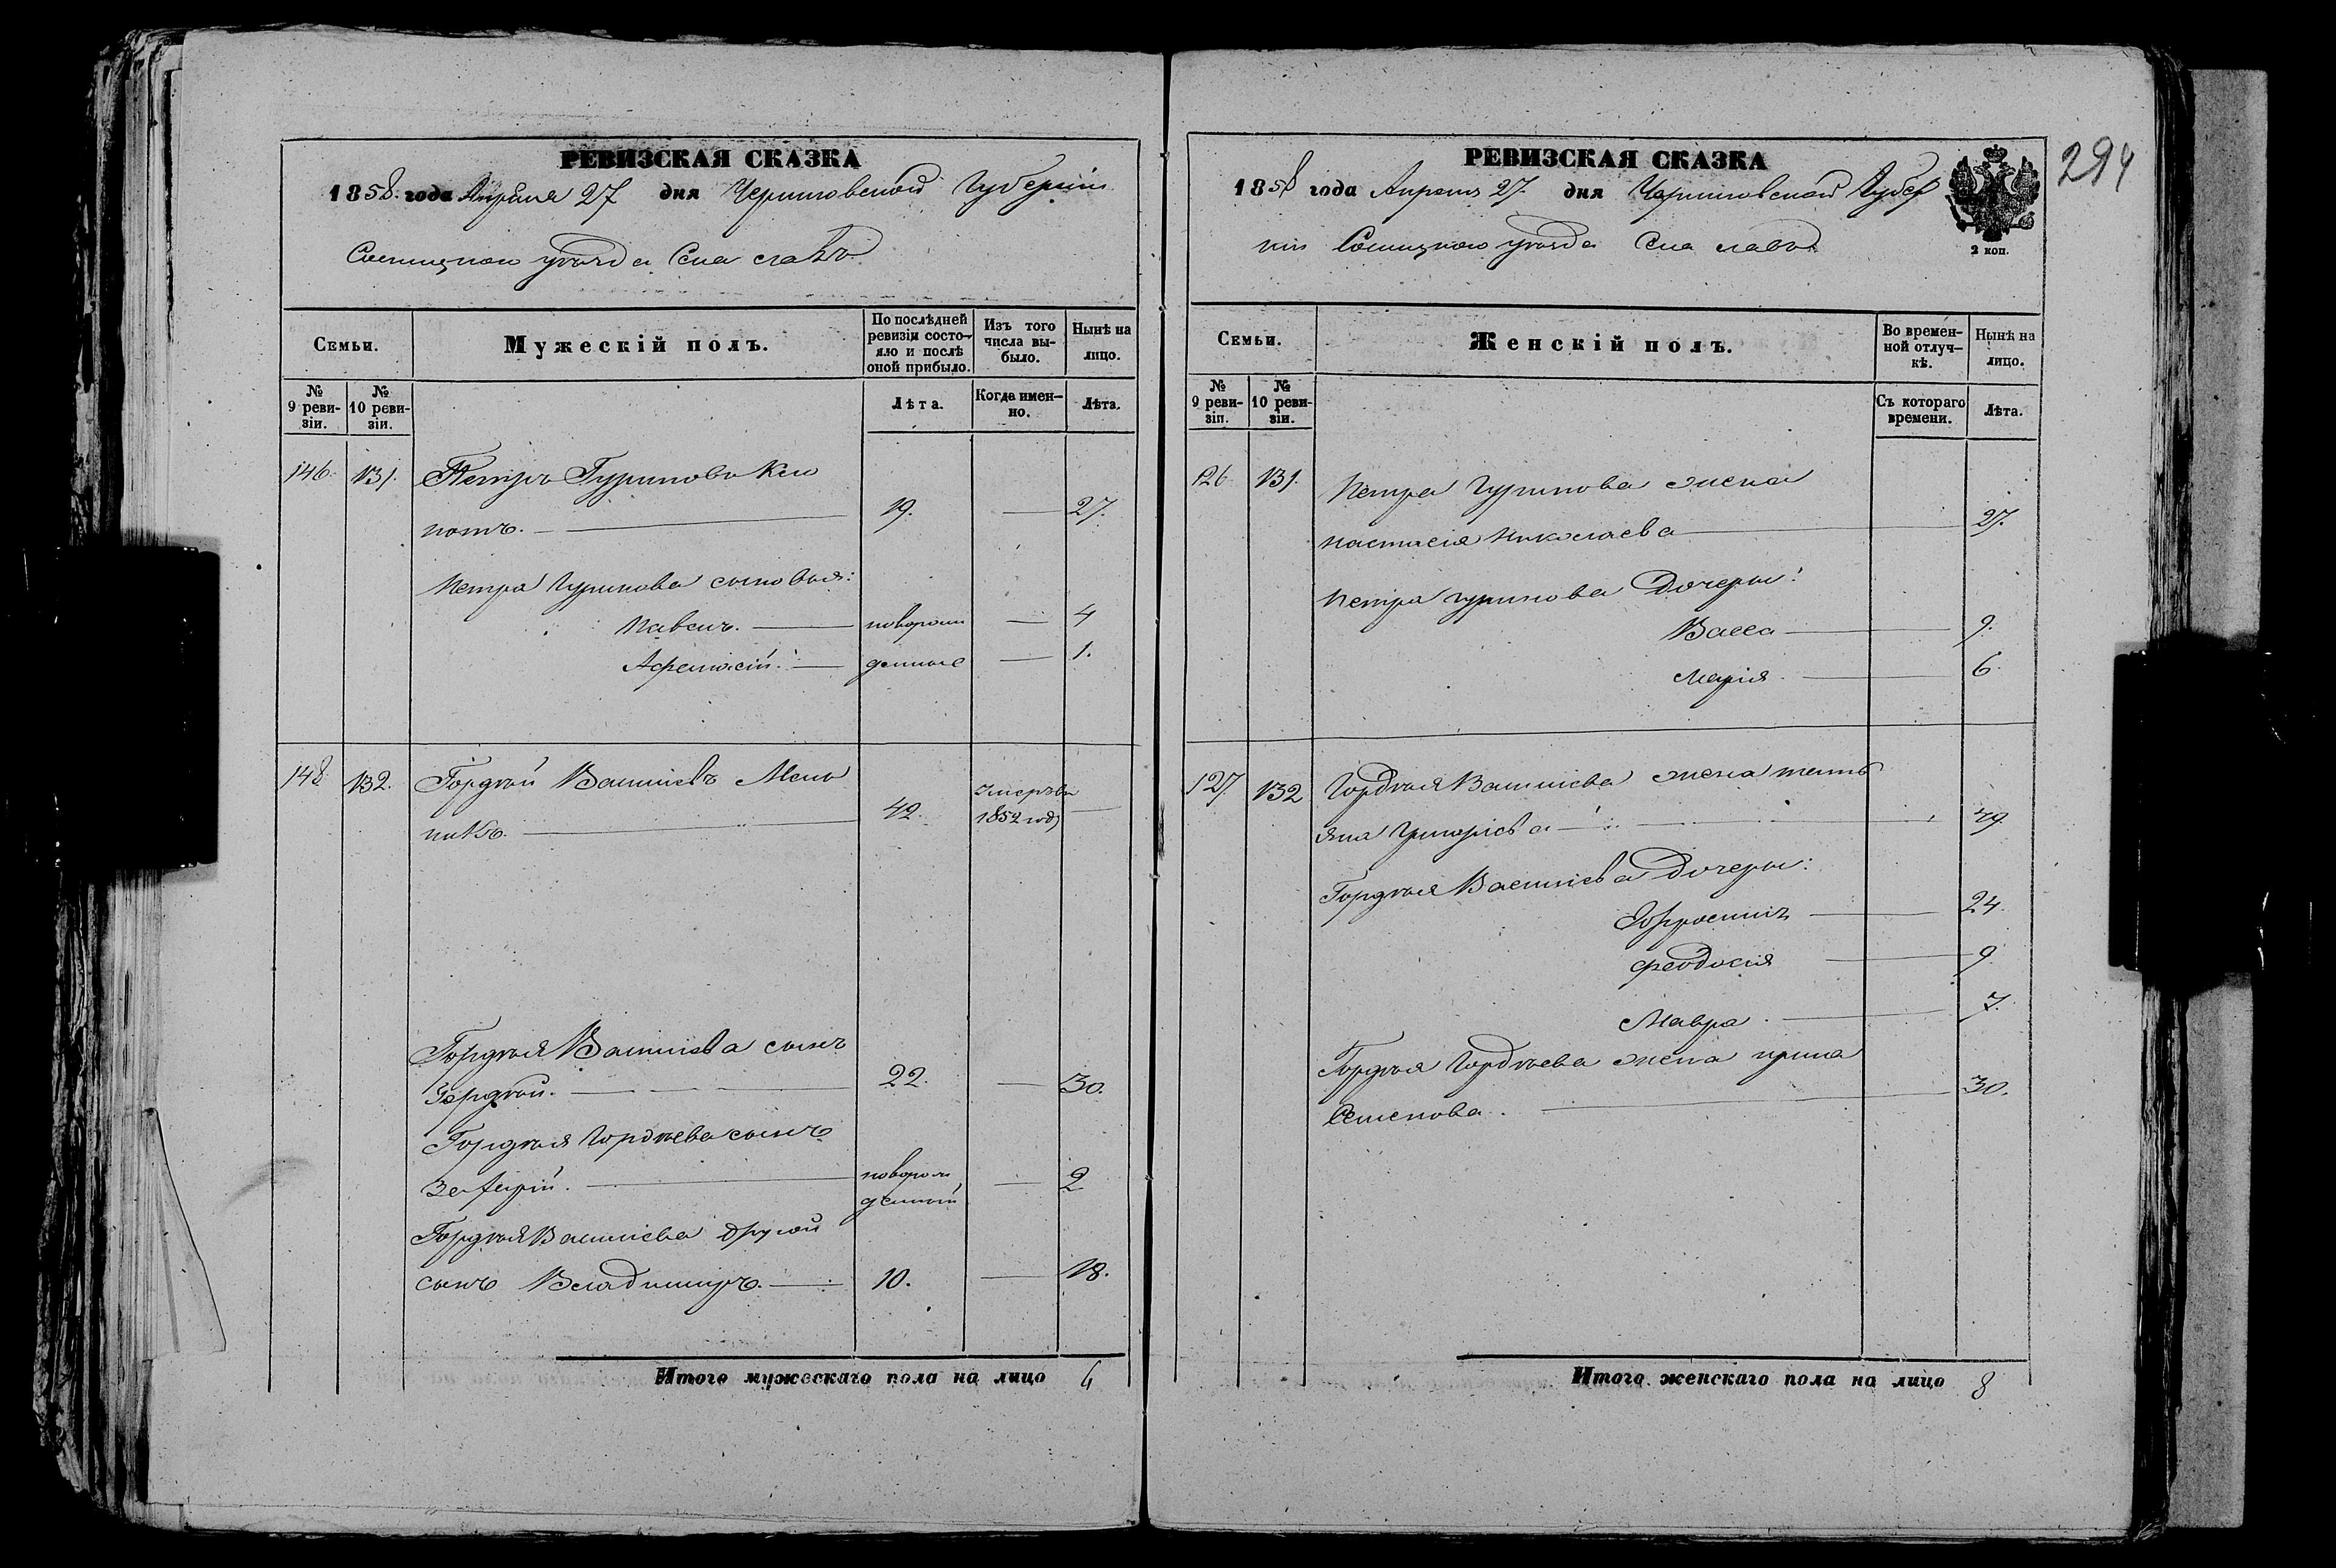 РЕВИЗСКАЯ СКАЗКА
1858 года Апреля 27 дня Черниговской Губерніи
Сосницкого уѣзда Села
Семьи.
Мужескій полъ.
По послѣдней ревизіи состояло и послѣ оной прибыло.
Изъ того числа выбыло.
Нынѣ на лицо.
№ 9 ревизіи.
№ 10 ревизіи.
Лѣта.
Когда именно.
Лѣта.
146. 131. Петръ Гуриновъ
19. — 27.
Петра Гуринова сыновья:
Павелъ. — новорож — 4
Афанасій. — денные — 1.
148 132. Гордѣй Василіевъ Мель
никъ. — 42. умеръ въ 1852 году —
Гордѣя Василіева сынъ
Гордѣй. — 22. — 30.
Гордѣя Гордѣева сынъ
Захарій. — новорожденный — 2
Гордѣя Василіева другой
сынъ Владимиръ. — 10. — 18.
Итого мужескаго пола на лицо 6
294
РЕВИЗСКАЯ СКАЗКА
1858 года Апреля 27 дня Черниговской Губер
ніи Сосницкого уѣзда Села
2 коп.
Семьи.
Женскій полъ.
Во временной отлучкѣ.
Нынѣ на лицо.
№ 9 ревизіи.
№ 10 ревизіи.
Съ котораго времени.
Лѣта.
126 131. Петра Гуринова жена
Настасія Николаева — 27.
Петра Гуринова Дочеры:
Васса — 9.
Марія — 6.
127. 132 Гордѣя Василіева жена Тать
яна Григоріева — 49.
Гордѣя Василіева Дочеры:
Ефросинія — 24.
Феодосія — 9
Мавра. — 7.
Гордѣя Гордѣева жена Ирина
Семенова. — 30.
Итого женскаго пола на лицо 8